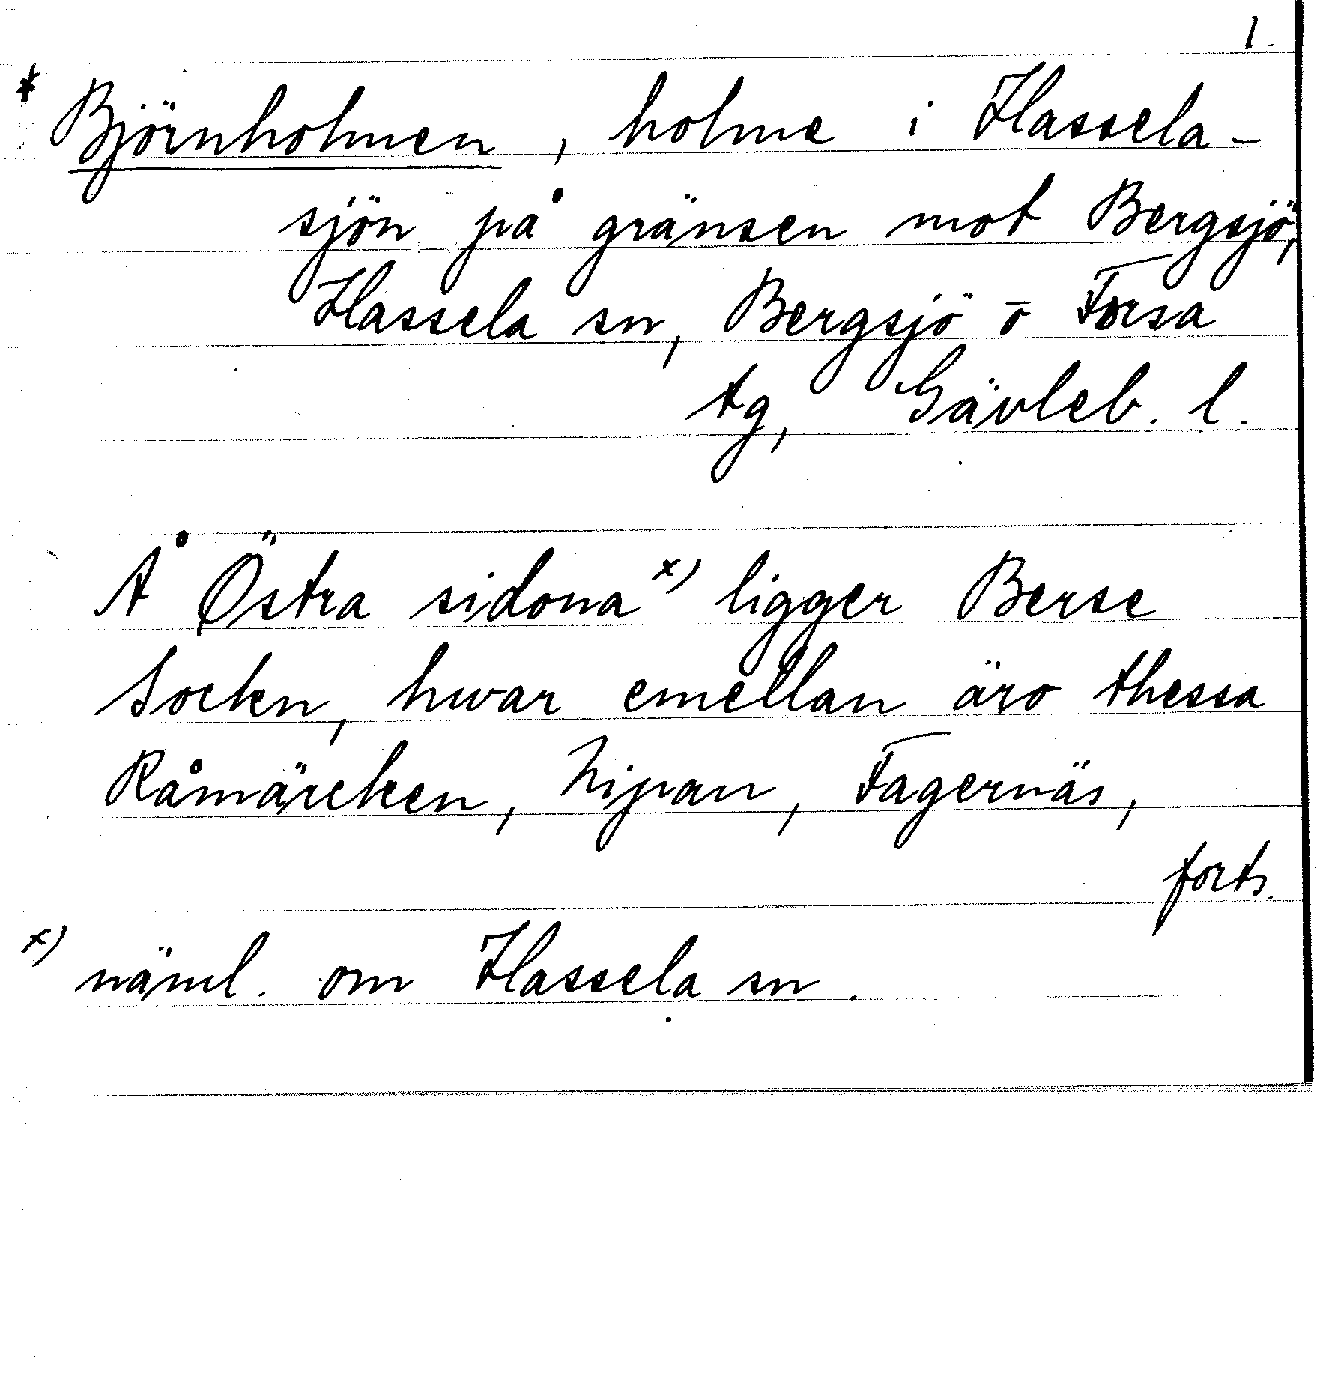 1.
* Björnholmen, holme i Hassela-
sjön på gränsen mot Bergsjö,
Hassela sn, Bergsjö o Forsa
tg, Gävleb. l.
Å Östra sidona x) ligger Berse
Socken, hwar emellan äro thessa
Råmärcken, Nipan, Fagernäs,
forts.
x) näml. om Hassela sn.